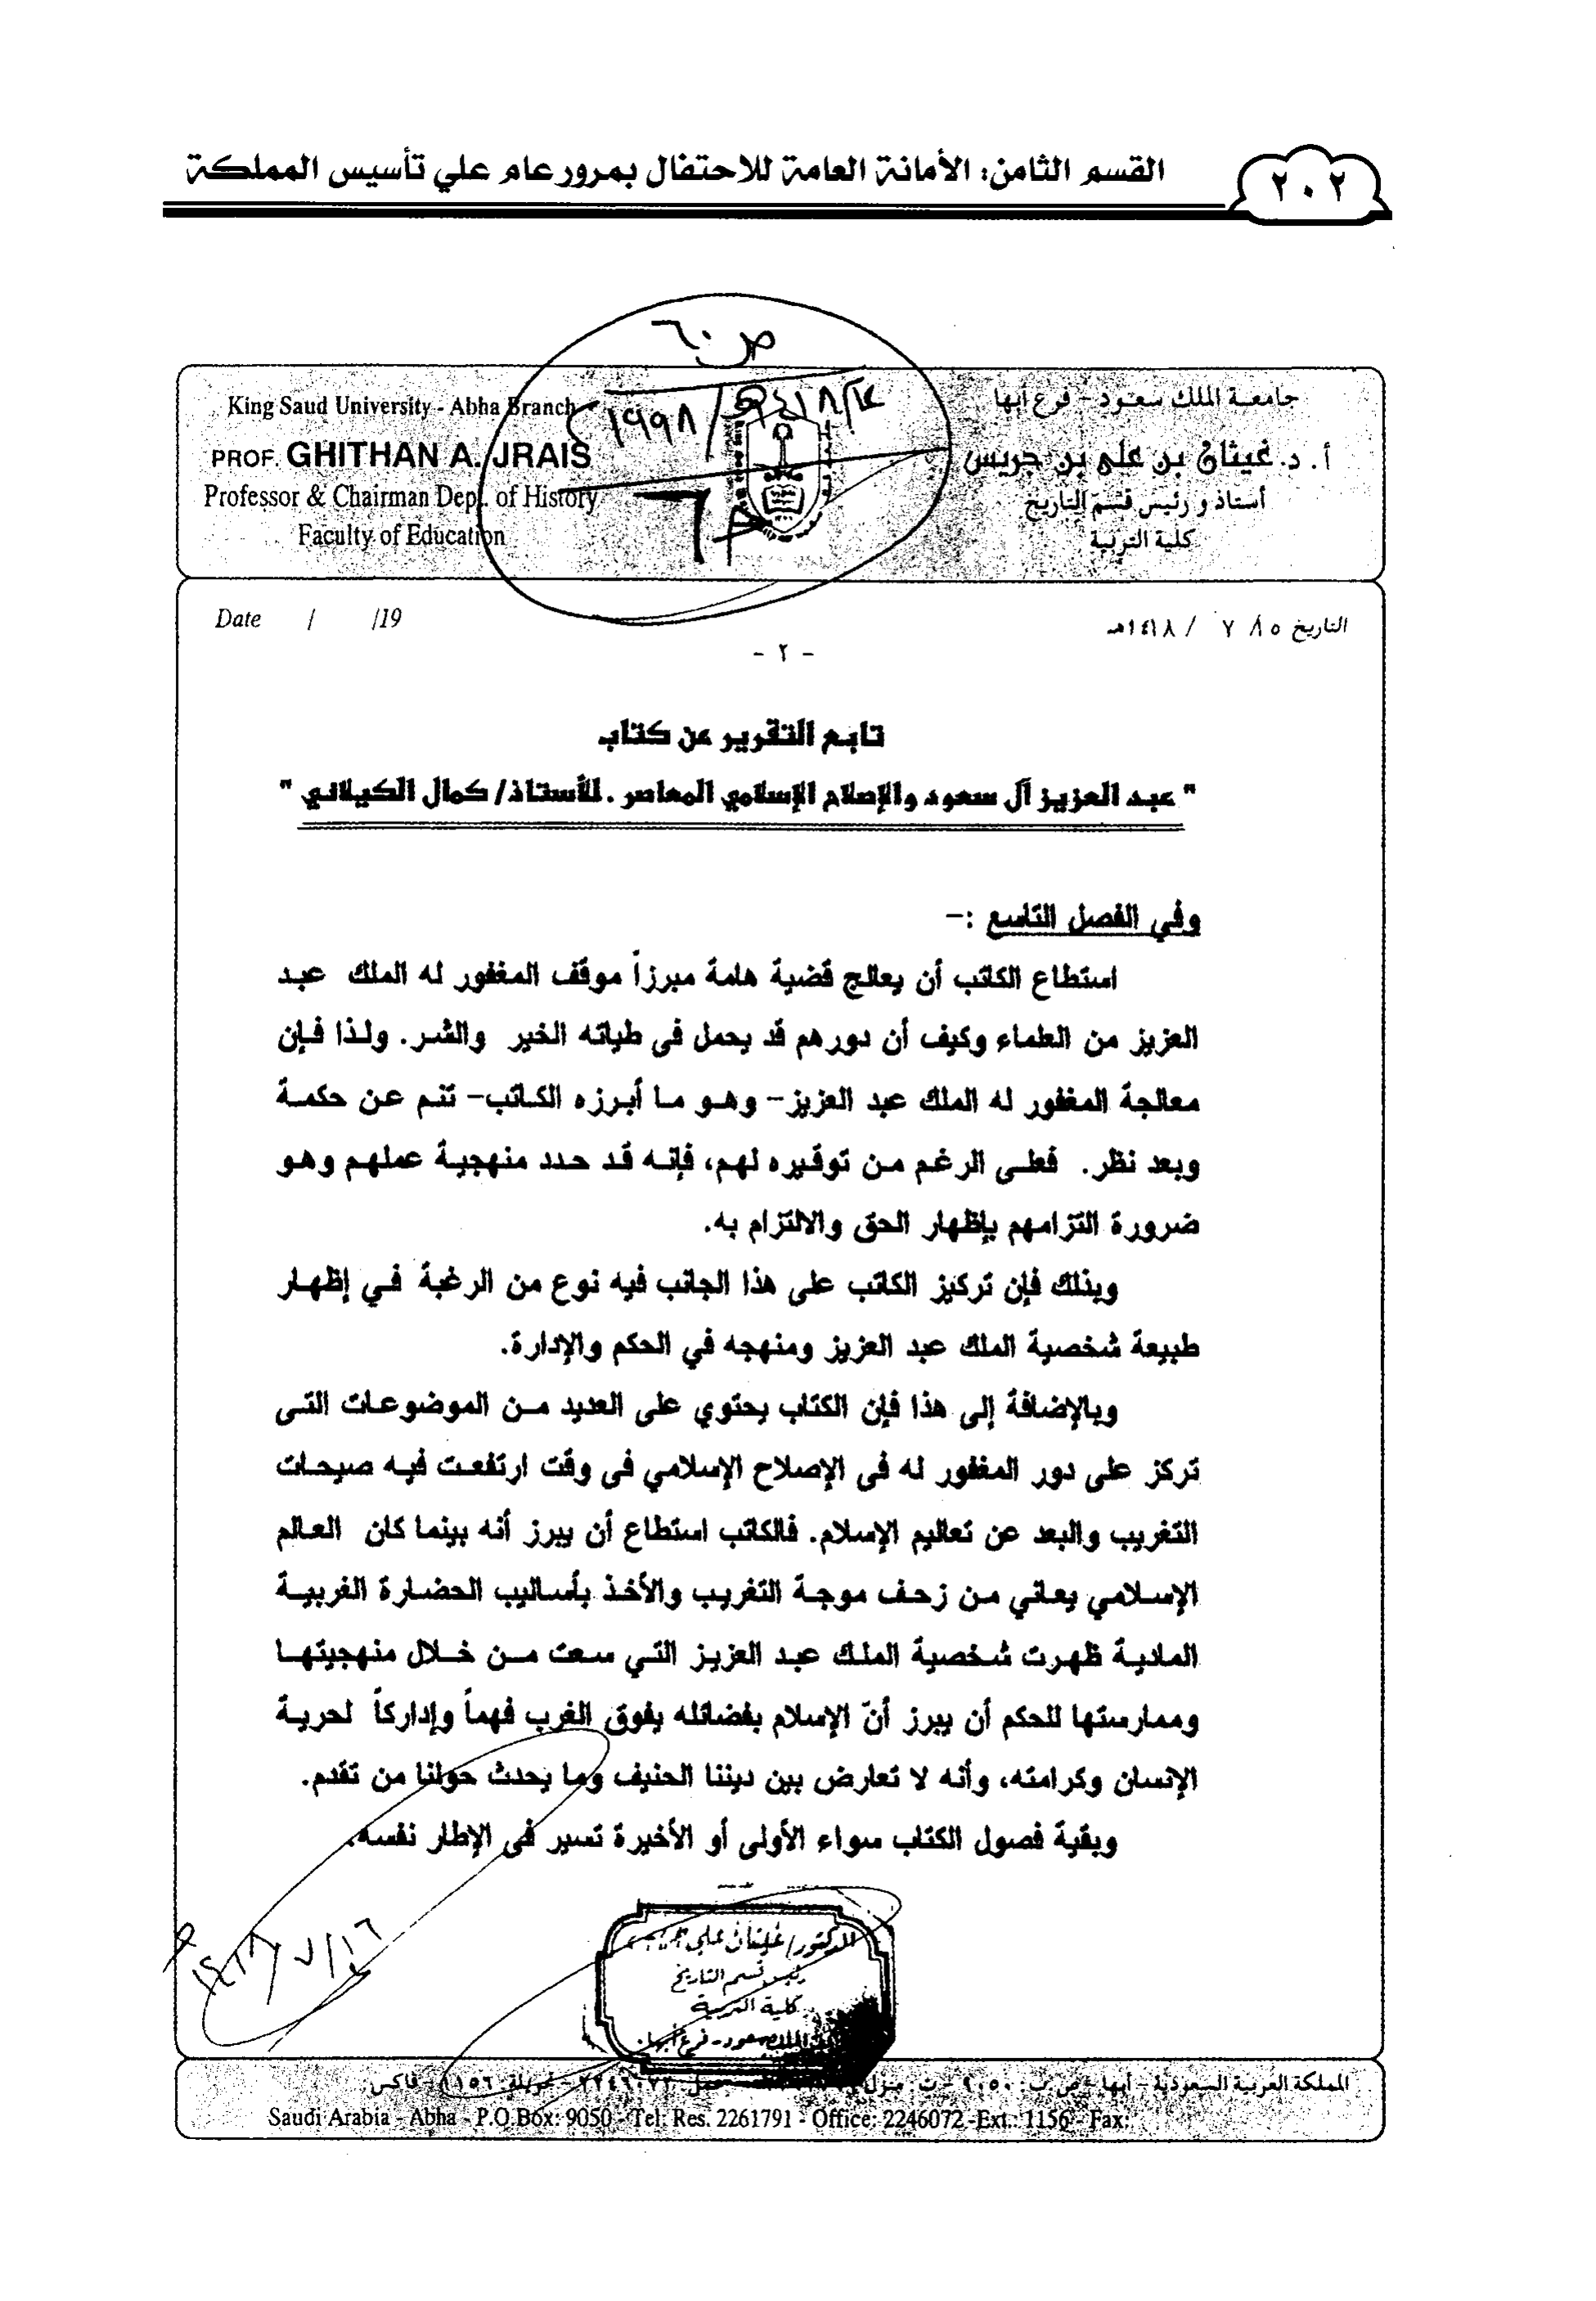 القسم الثامن: الأمانة العامة للاحتفال بمرور عام علي تأسيس المملكة
٢٠٢
ص ٦٠
١٩٩٨/
م٦
King Saud University - Abha Branch
PROF. GHITHAN A. JRAIS
Professor & Chairman Dept. of History
Faculty of Education
جامعة الملك سعود - فرع أبها
أ. د. غيثان بن علي بن جريس
أستاذ و رئيس قسم التاريخ
كلية التربية
Date / /19
التاريخ ٨٥/ ٧ / ١٤١٨هـ
- ٢ -
تابع التقرير عن كتاب
" عبد العزيز آل سعود والإصلاح الإسلامي المعاصر . للأستاذ/ كمال الكيلاني "
وفي الفصل التاسع :-
استطاع الكاتب أن يعالج قضية هامة مبرزاً موقف المغفور له الملك عبد
العزيز من العلماء وكيف أن دورهم قد يحمل فى طياته الخير والشر. ولذا فإن
معالجة المغفور له الملك عبد العزيز- وهو ما أبرزه الكاتب- تنم عن حكمة
وبعد نظر. فعلى الرغم من توقيره لهم، فإنه قد حدد منهجية عملهم وهو
ضرورة التزامهم بإظهار الحق والالتزام به.
وبذلك فإن تركيز الكاتب على هذا الجانب فيه نوع من الرغبة في إظهار
طبيعة شخصية الملك عبد العزيز ومنهجه في الحكم والإدارة.
وبالإضافة إلى هذا فإن الكتاب يحتوي على العديد من الموضوعات التى
تركز على دور المغفور له فى الإصلاح الإسلامي فى وقت ارتفعت فيه صيحات
التغريب والبعد عن تعاليم الإسلام. فالكاتب استطاع أن يبرز أنه بينما كان العالم
الإسلامي يعاني من زحف موجة التغريب والأخذ بأساليب الحضارة الغربية
المادية ظهرت شخصية الملك عبد العزيز التي سعت من خلال منهجيتها
وممارستها للحكم أن يبرز أنّ الإسلام بفضائله يفوق الغرب فهماً وإداركاً لحرية
الإنسان وكرامته، وأنه لا تعارض بين ديننا الحنيف وما يحدث حولنا من تقدم.
وبقية فصول الكتاب سواء الأولى أو الأخيرة تسير فى الإطار نفسه.
الدكتور/ غيثان علي جريس
رئيس قسم التاريخ
كلية التربية
الملك سعود - فرع أبها
١٦/٧/١٤١٨هـ
المملكة العربية السعودية - أبها - ص ب: ٩٠٥٠ - ت: منزل ٢٢٤٦٠٧٢ - تحويلة: ١١٥٦ - فاكس:
Saudi Arabia - Abha - P.O.Box: 9050 - Tel: Res. 2261791 - Office: 2246072 -Ext.: 1156 - Fax: